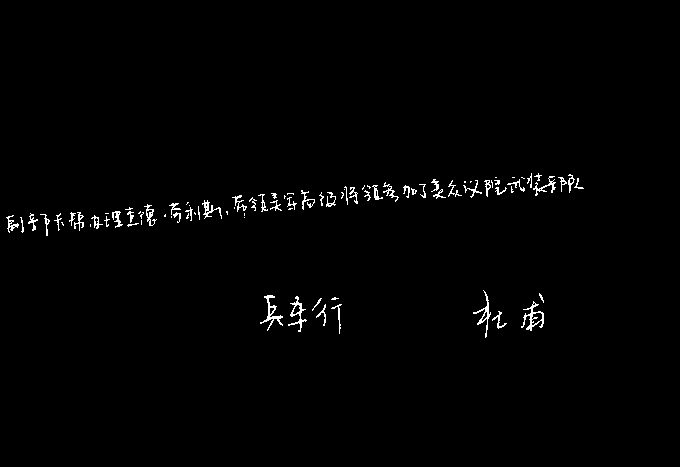 副部长帮办理查德·劳利斯,带领美军高级将领参加了美众议院武装部队
兵车行 杜甫